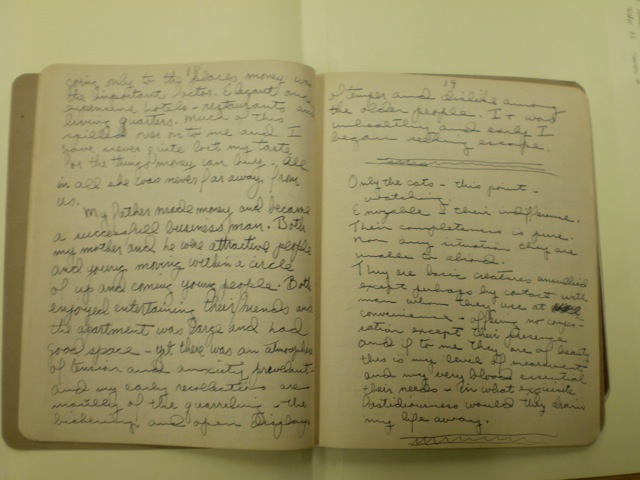 18
going only to the places money was
the important factor. Elegant and
expensive hotels - restaurants and
living quarters. Much of this
spilled over on to me and I
have never quite lost my taste
for the things money can buy. All
in all she was never far away from
us.
My father made money and became
a successful business man. Both
my mother and he were attractive people
and young moving within a circle
of up and coming young people. Both
enjoyed entertaining their friends and
the apartment was large and had
good space - yet there was an atmosphere
of tension and anxiety prevalent -
and my early recollections are
mostly of the quarreling - the
bickering and open displays
19
of temper and dislike among
the older people. It was
unhealthy and early I
began seeking escape.
Only the cats - this point -
watching.
Enviable I their indifference.
Their completeness is pure.
Non any situation they are
unable to absorb.
They are basic creatures
except perhaps by contact with
man whom they use at
convenience - offering no
except their presence
and if to me they are of beauty
this is my level of measurement
and my very blood essential
their needs - in what exquisite
fastidiousness would they drain
my life away.